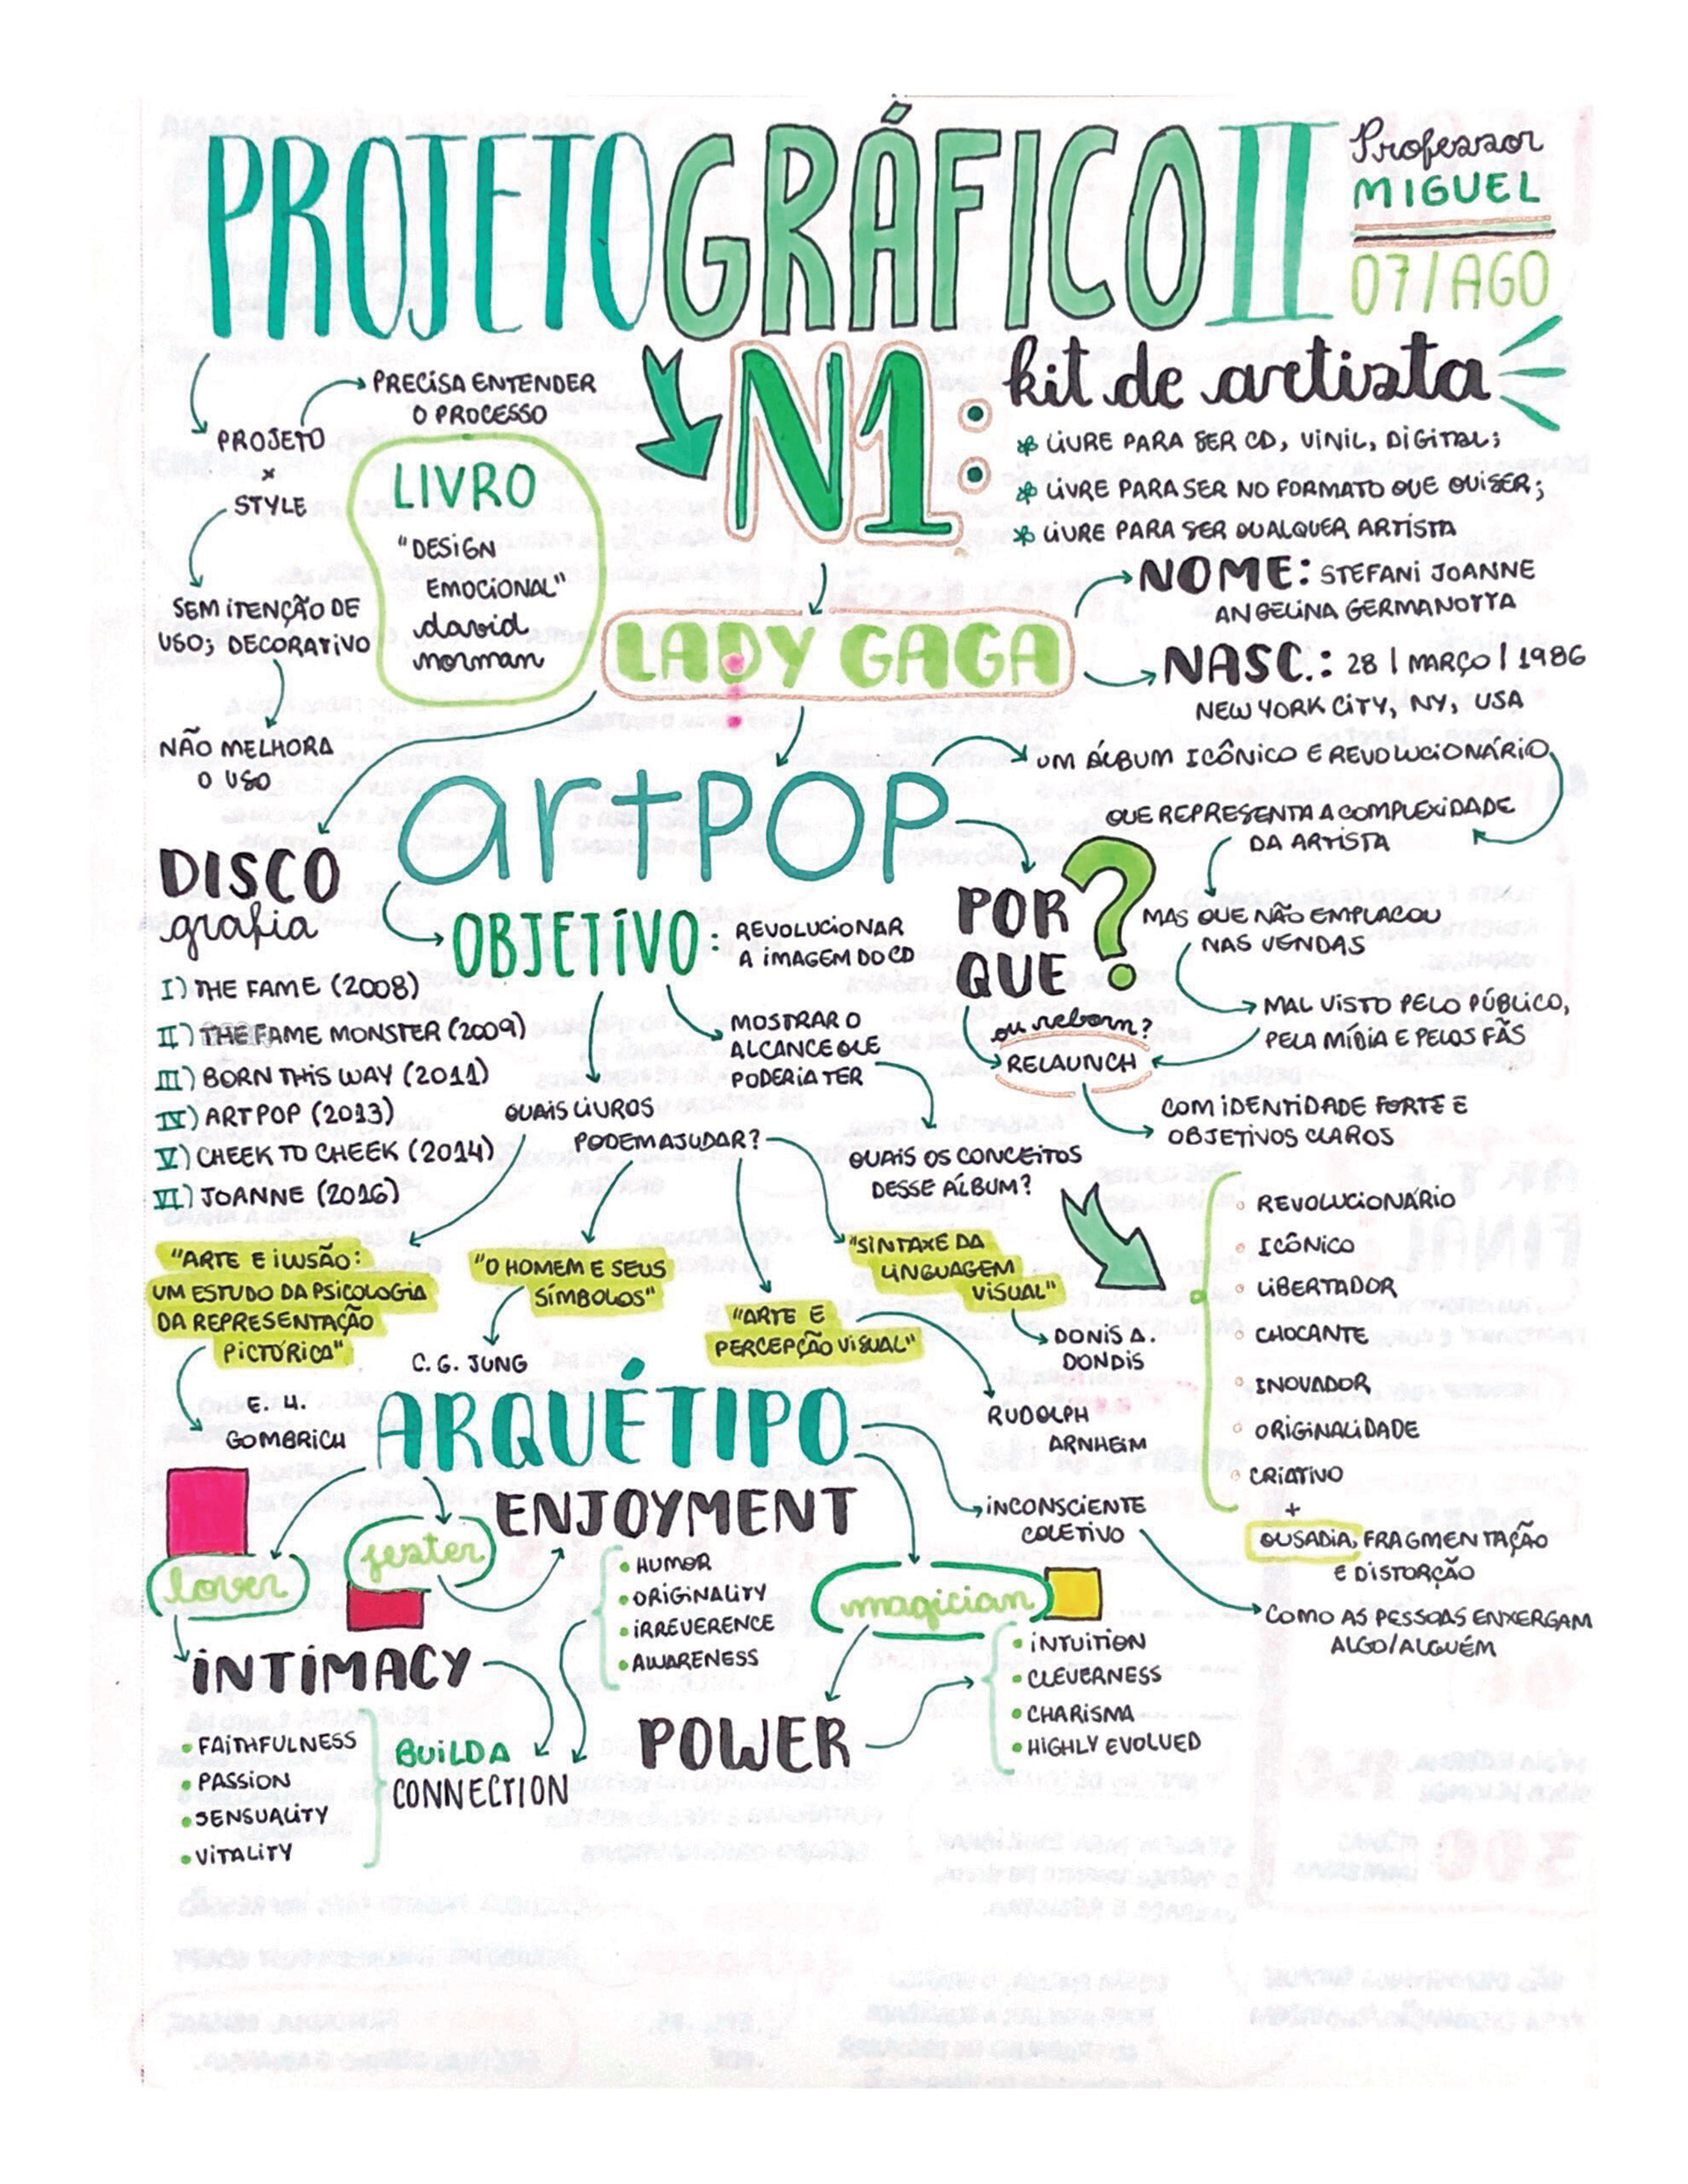 PROJETO GRÁFICO II
Professor
MIGUEL
07/AGO
PROJETO
x
STYLE
PRECISA ENTENDER
O PROCESSO
SEM ITENÇÃO DE
USO; DECORATIVO
NÃO MELHORA
O USO
LIVRO
"DESIGN
EMOCIONAL"
david
norman
N1: kit de artista
* LIVRE PARA SER CD, VINIL, DIGITAL;
* LIVRE PARA SER NO FORMATO QUE QUISER;
* LIVRE PARA SER QUALQUER ARTISTA
LADY GAGA
NOME: STEFANI JOANNE
ANGELINA GERMANOTTA
NASC.: 28 | MARÇO | 1986
NEW YORK CITY, NY, USA
artPOP
UM ÁLBUM ICÔNICO E REVOLUCIONÁRIO
QUE REPRESENTA A COMPLEXIDADE
DA ARTISTA
MAS QUE NÃO EMPLACOU
NAS VENDAS
MAL VISTO PELO PÚBLICO,
PELA MÍDIA E PELOS FÃS
POR
QUE ?
ou reborn?
RELAUNCH
COM IDENTIDADE FORTE E
OBJETIVOS CLAROS
DISCO
grafia
I) THE FAME (2008)
II) THE FAME MONSTER (2009)
III) BORN THIS WAY (2011)
IV) ARTPOP (2013)
V) CHEEK TO CHEEK (2014)
VI) JOANNE (2016)
OBJETIVO: REVOLUCIONAR
A IMAGEM DO CD
MOSTRAR O
ALCANCE QUE
PODERIA TER
QUAIS LIVROS
PODEM AJUDAR?
QUAIS OS CONCEITOS
DESSE ÁLBUM?
REVOLUCIONÁRIO
ICÔNICO
LIBERTADOR
CHOCANTE
INOVADOR
ORIGINALIDADE
CRIATIVO
+
OUSADIA, FRAGMENTAÇÃO
E DISTORÇÃO
"ARTE E ILUSÃO:
UM ESTUDO DA PSICOLOGIA
DA REPRESENTAÇÃO
PICTÓRICA"
E. H.
GOMBRICH
"O HOMEM E SEUS
SÍMBOLOS"
C. G. JUNG
"ARTE E
PERCEPÇÃO VISUAL"
RUDOLPH
ARNHEIM
"SINTAXE DA
LINGUAGEM
VISUAL"
DONIS A.
DONDIS
ARQUÉTIPO
INCONSCIENTE
COLETIVO
COMO AS PESSOAS ENXERGAM
ALGO/ALGUÉM
lover
INTIMACY
• FAITHFULNESS
• PASSION
• SENSUALITY
• VITALITY
BUILD A
CONNECTION
jester
ENJOYMENT
• HUMOR
• ORIGINALITY
• IRREVERENCE
• AWARENESS
magician
POWER
• INTUITION
• CLEVERNESS
• CHARISMA
• HIGHLY EVOLVED